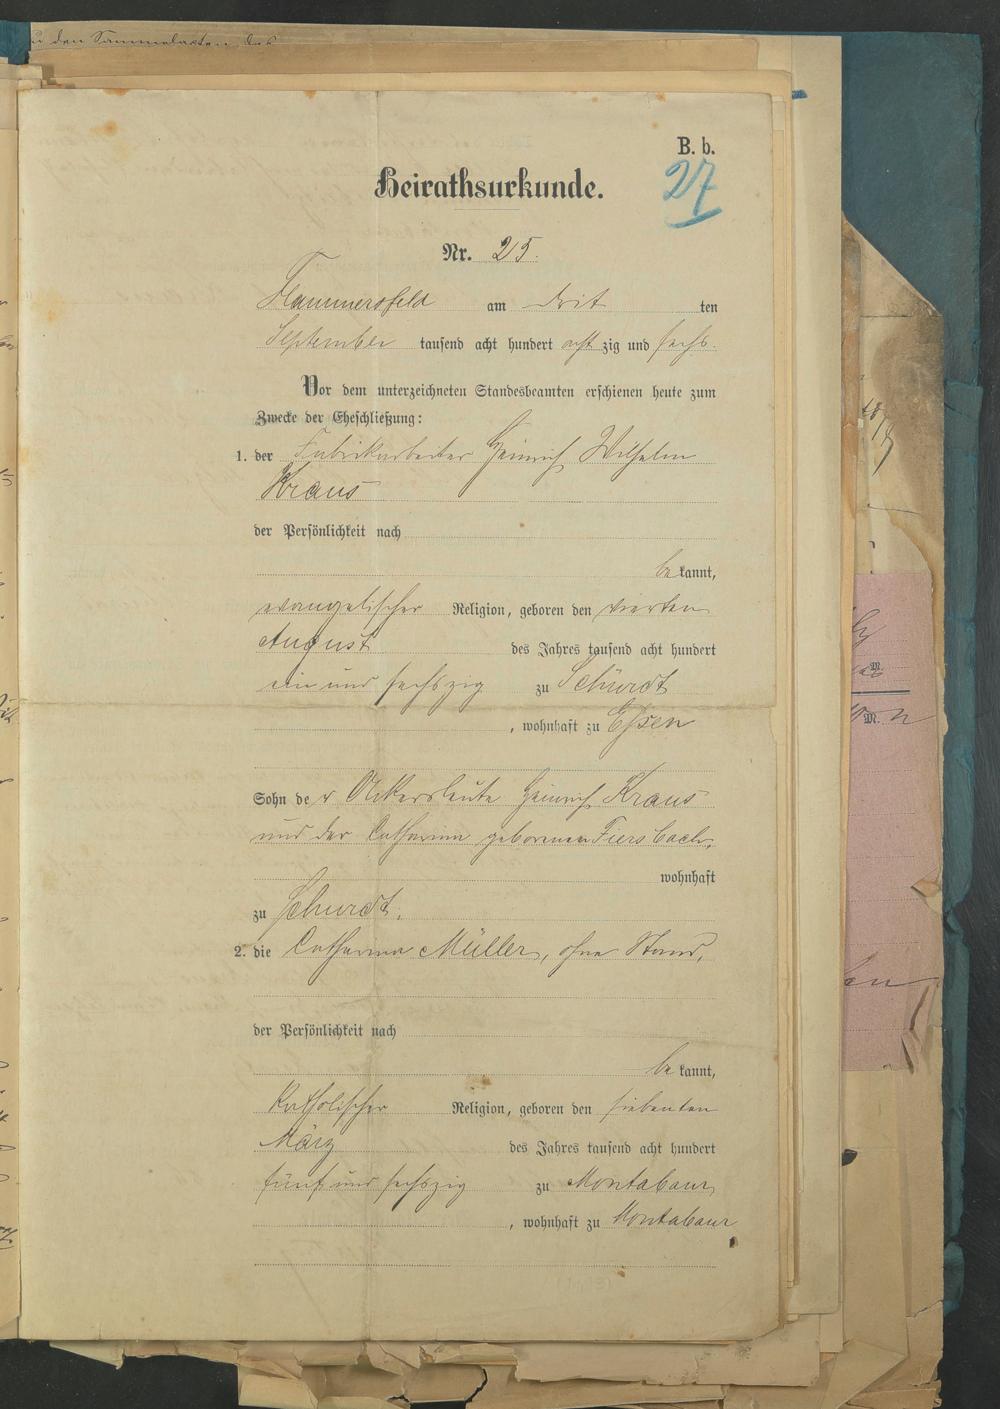 zu den Sammelakten des
B. b.
27
Heirathsurkunde.
Nr. 25.
Flammersfeld am dritten
September tausend acht hundert achtzig und sechs.
Vor dem unterzeichneten Standesbeamten erschienen heute zum
Zwecke der Eheschließung:
1. der Fabrikarbeiter Heinrich Wilhelm
Kraus
der Persönlichkeit nach
bekannt,
evangelischer Religion, geboren den vierten
August des Jahres tausend acht hundert
ein und sechszig zu Schürdt
, wohnhaft zu Essen
Sohn der Ackersleute Heinrich Kraus
und der Catharina geborenen Fiersbach,
wohnhaft
zu Schürdt.
2. die Catharina Müller, ohne Stand,
der Persönlichkeit nach
bekannt,
katholischer Religion, geboren den siebenten
März des Jahres tausend acht hundert
fünf und sechszig zu Montabaur
, wohnhaft zu Montabaur